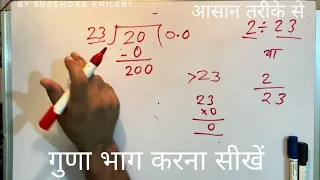 BY SURENDRA KHILERY
आसान तरीके से
23)20(0.0
-0
200
>23
23
×0
0
2÷23
या
2
23
गुणा भाग करना सीखें